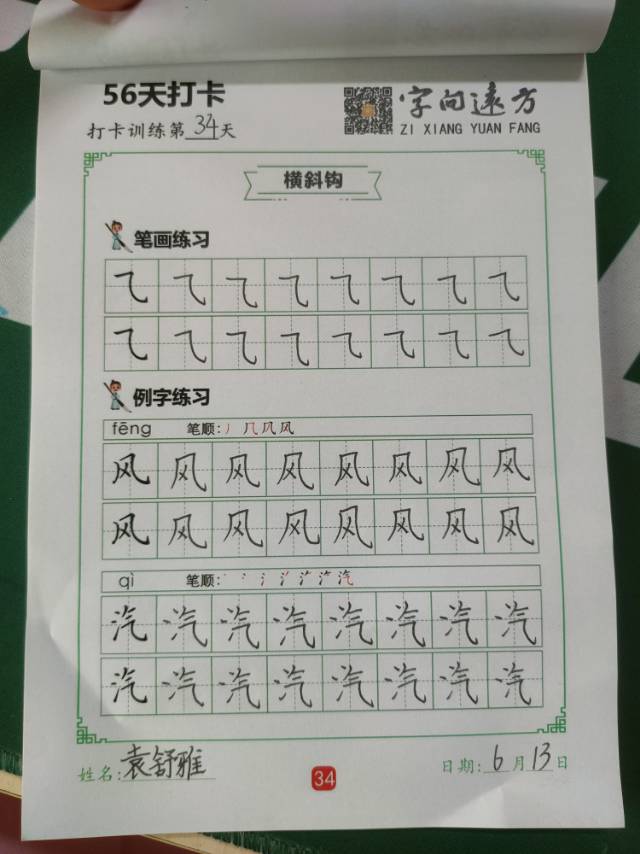 56天打卡
字向远方
打卡训练第34天
ZI XIANG YUAN FANG
横斜钩
笔画练习
㇈ ㇈ ㇈ ㇈ ㇈ ㇈ ㇈ ㇈
㇈ ㇈ ㇈ ㇈ ㇈ ㇈ ㇈ ㇈
例字练习
fēng 笔顺: 丿 几 风 风
风 风 风 风 风 风 风 风
风 风 风 风 风 风 风 风
qì 笔顺: 汽
汽 汽 汽 汽 汽 汽 汽 汽
汽 汽 汽 汽 汽 汽 汽 汽
姓名: 袁舒雅
34
日期: 6月13日